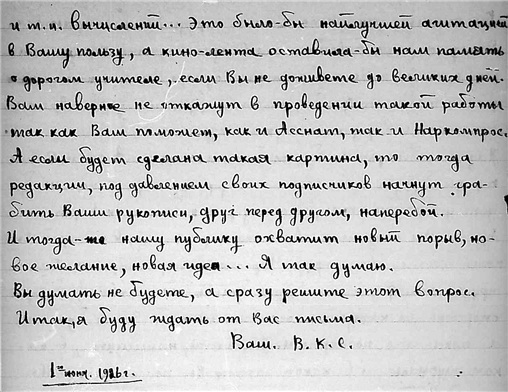 и т.п. вычислений... Это было-бы найлучшей агитацией
в Вашу пользу, а кино-лента оставила-бы нам память
о дорогом учителе, если Вы не доживете до великих дней.
Вам наверное не откажут в проведении такой работы
так как Вам поможет, как и Асснат, так и Наркомпрос.
А если будет сделана такая картина, то тогда
редакции, под давлением своих подписчиков начнут гра-
бить Ваши рукописи, друг перед другом, наперебой.
И тогда-же нашу публику охватит новый порыв, но-
вое желание, новая идея... Я так думаю.
Вы думать не будете, а сразу решите этот вопрос.
Итак, я буду ждать от Вас письма.
Ваш. В. К. С.
1го июн. 1926 г.